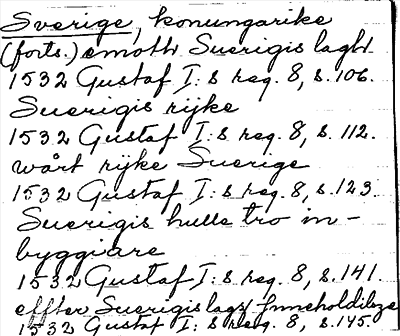 Sverige, konungarike
(forts.) emoth Suerigis laghr
1532 Gustaf I:s reg. 8, s. 106.
Suerigis rijke
1532 Gustaf I:s reg. 8, s. 112.
wårt rijke Suerige
1532 Gustaf I:s reg. 8, s. 123.
Suerigis hulle tro in-
byggiare
1532 Gustaf I:s reg. 8, s. 141.
effter Suerigis lags
1532 Gustaf I:s reg. 8, s. 145.